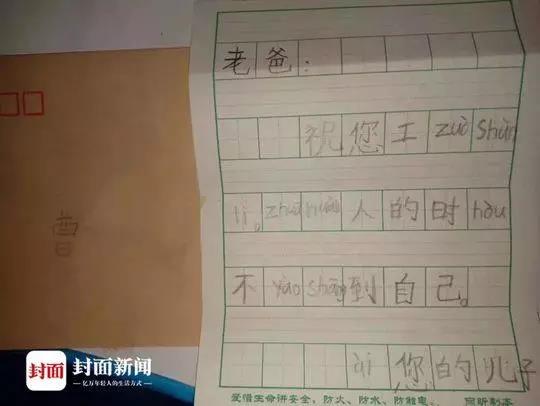 老爸：
祝您工zuò shùn
lì。zhuā huài人的时hòu
不yào shāng到自己。
ài您的儿子
爱惜生命讲安全，防火、防水、防触电。
曹
封面 封面新闻
亿万年轻人的生活方式